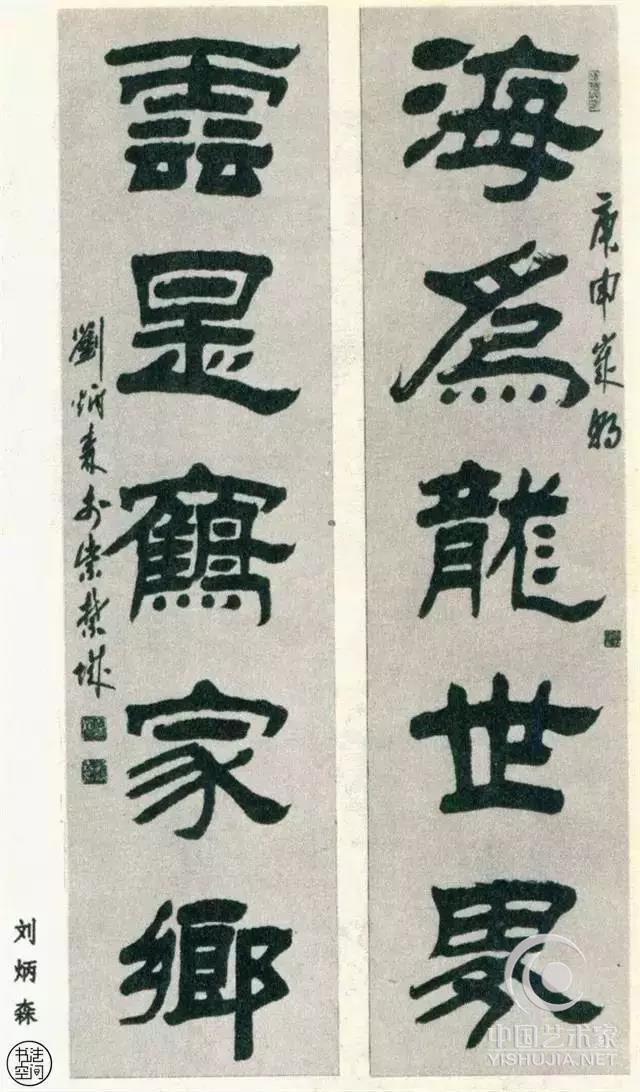 庚申歲
海爲龍世界
雲是鶴家鄉
劉炳森於紫禁城
刘炳森
书法
空间
中国艺术家
YISHUJIA.NET